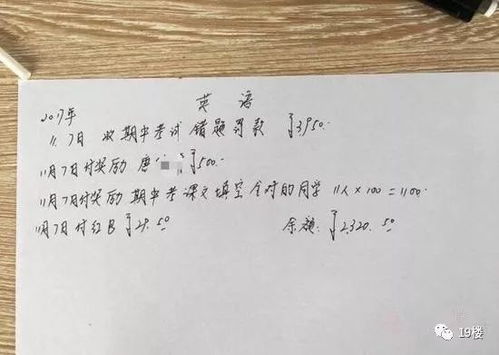 英语
2017年
11.7日 收期中考试错题罚款 ¥3950.-
11月7日付奖励 唐 ¥500.-
11月7日付奖励 期中考课文填空全对的同学 11人×100=1100.-
11月7日付红B ¥29.50 余额: ¥2,320.50
19楼